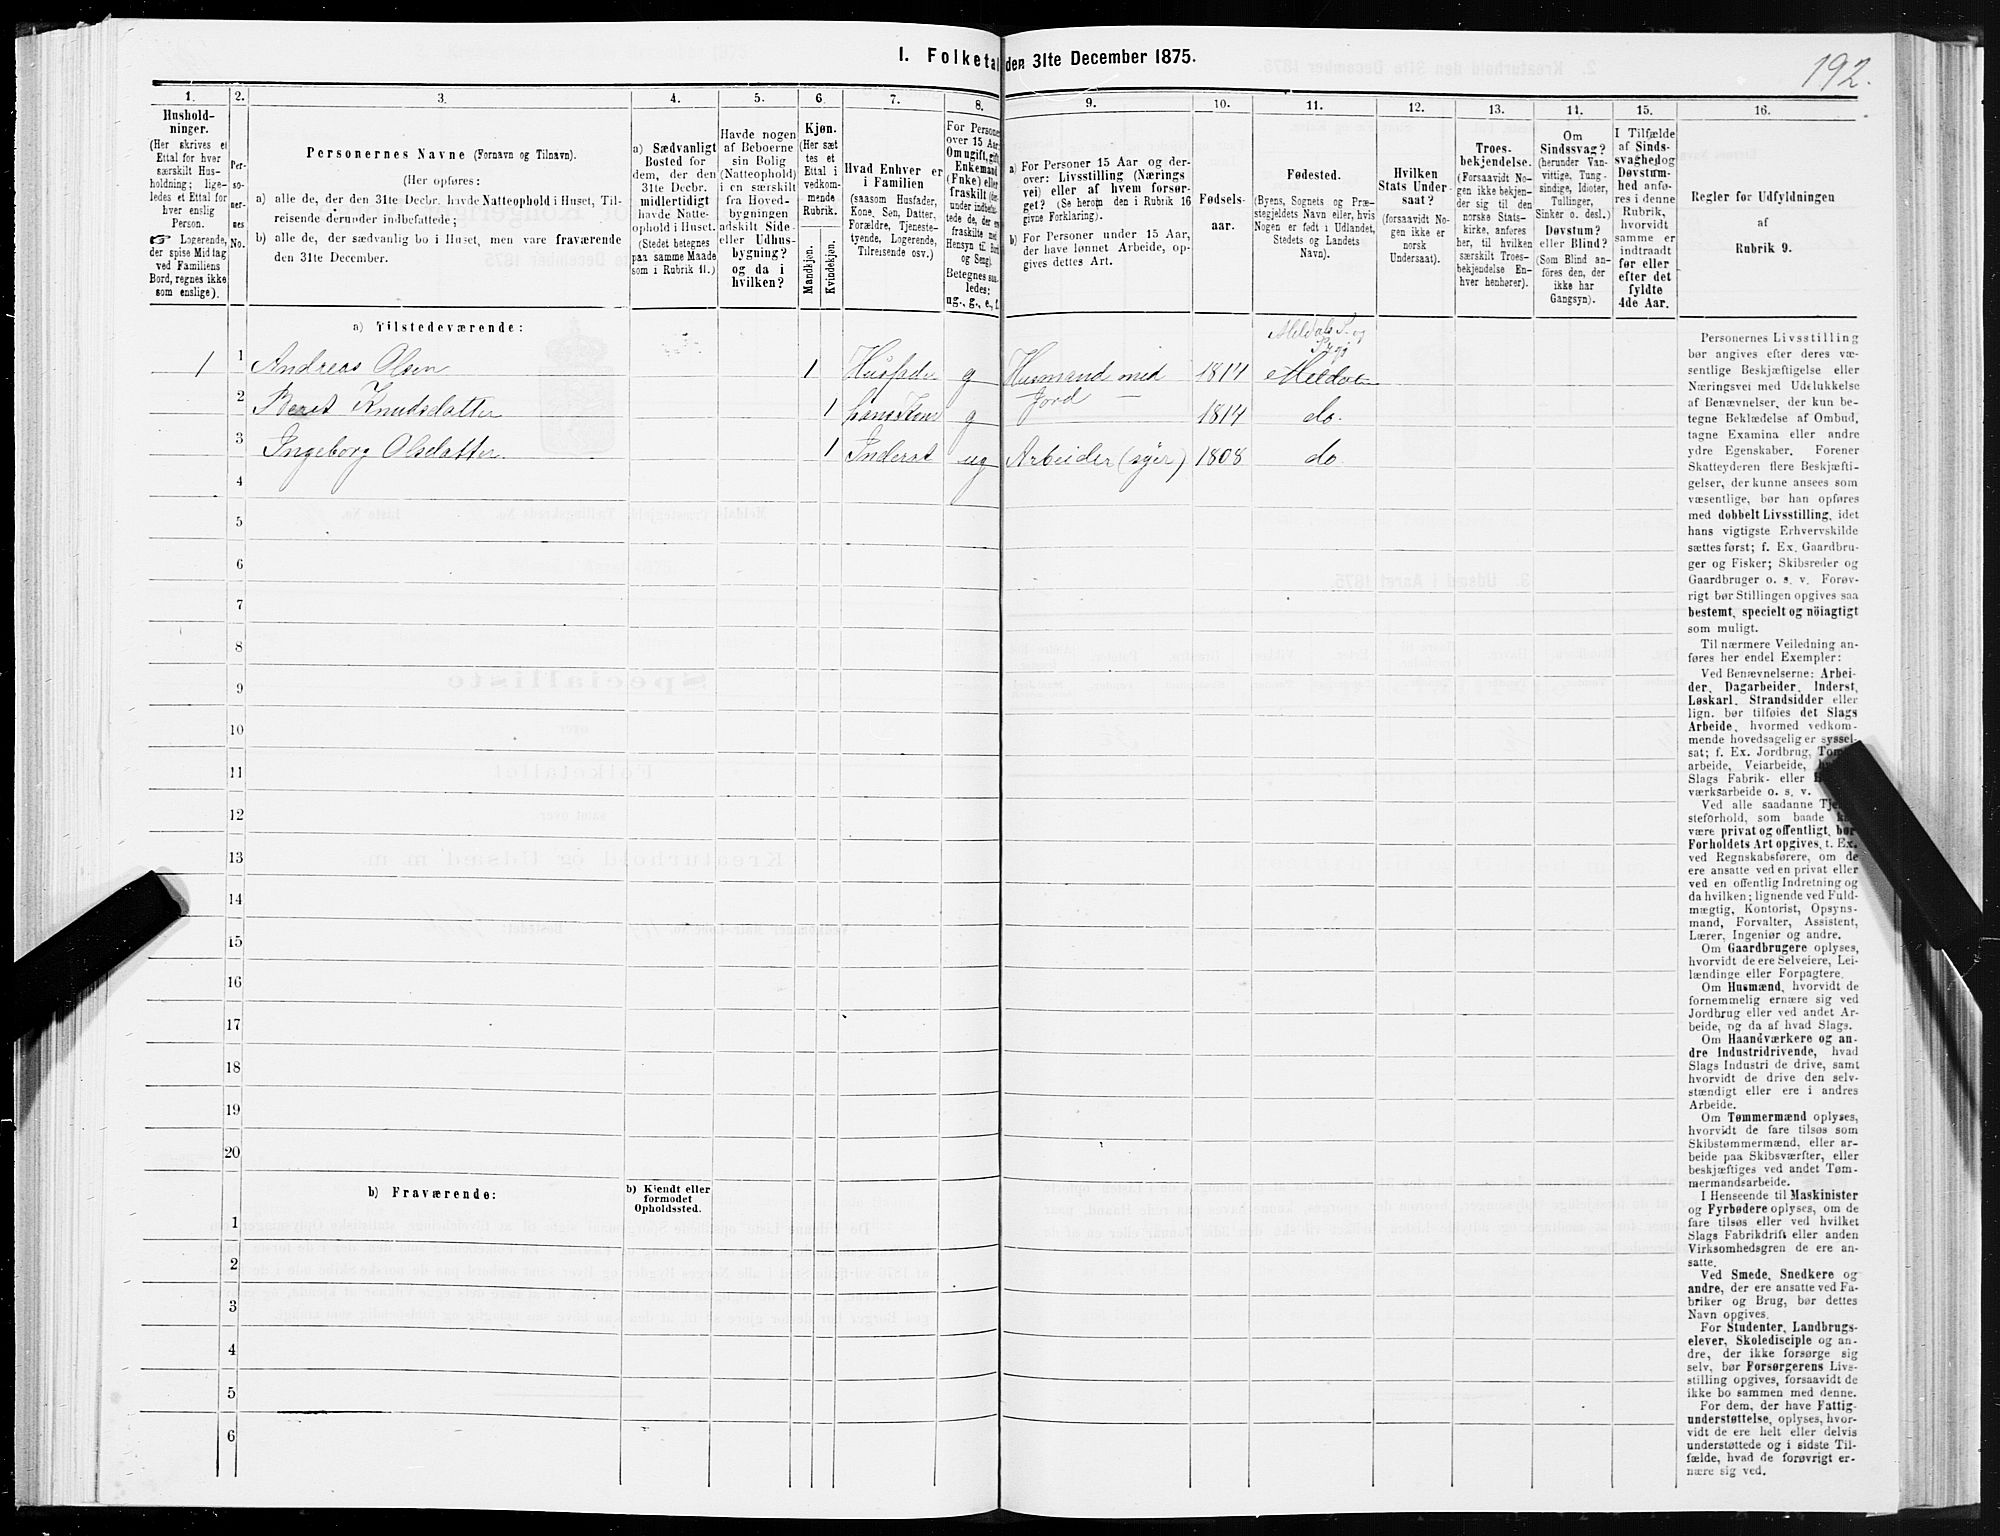 I. Folketal den 31te December 1875.
192.
1. 2. 3. 4. 5. 6. 7. 8. 9. 10. 11. 12. 13. 14. 15. 16.
Hushold-
ninger.
(Her skrives et
Ettal for hver
særskilt Hus-
holdning; lige-
ledes et Ettal for
hver enslig
Person.
☞ Logerende,
der spise Middag
ved Familiens
Bord, regnes ikke
som enslige).
Per-
so-
ner-
nes
No.
Personernes Navne (Fornavn og Tilnavn).
(Her opføres:
a) alle de, der den 31te Decbr. havde Natteophold i Huset, Til-
reisende derunder indbefattede;
b) alle de, der sædvanlig bo i Huset, men vare fraværende
den 31te December.
a) Sædvanligt
Bosted for
dem, der den
31te Decbr.
midlertidigt
havde Natte-
ophold i Huset.
(Stedet betegnes
paa samme Maade
som i Rubrik 11.)
Havde nogen
af Beboerne
sin Bolig
(Natteophold)
i en særskilt
fra Hoved-
bygningen
adskilt Side-
eller Udhus-
bygning?
og da i
hvilken?
Kjøn.
(Her sæt-
tes et
Ettal i
vedkom-
mende
Rubrik.
Mandkjøn.
Kvindekjøn.
Hvad Enhver er
i Familien
(saasom Husfader,
Kone, Søn, Datter,
Forældre, Tjeneste-
tyende, Logerende,
Tilreisende osv.)
For Personer
over 15 Aar:
Om ugift, gift,
Enkemand
(Enke) eller
fraskilt
Betegnes saa-
ledes:
ug., g., e., f.
a) For Personer 15 Aar og der-
over: Livsstilling (Nærings-
vei) eller af hvem forsør-
get? (Se herom den i Rubrik 16
givne Forklaring).
b) For Personer under 15 Aar,
der have lønnet Arbeide, op-
gives dettes Art.
Fødsels-
aar.
Fødested.
(Byens, Sognets og Præ-
stegjeldets Navn eller, hvis
Nogen er født i Udlandet,
Stedets og Landets
Navn).
Hvilken
Stats Under-
saat?
(forsaavidt No-
gen ikke er
norsk
Undersaat).
Troes-
bekjendelse.
(Forsaavidt No-
gen ikke bekjen-
der sig til den
norske Stats-
kirke, anføres
her, til hvilken
særskilt Troes-
bekjendelse En-
hver henhører).
Om
Sindssvag?
(herunder Van-
vittige, Tung-
sindige, Idioter,
Tullinger,
Sinker o. desl.)
Døvstum?
eller Blind?
(Som Blind an-
føres den, der
ikke har
Gangsyn).
I Tilfælde
af Sinds-
svaghed og
Døvstum-
hed anfø-
res i denne
Rubrik,
hvorvidt
samme er
indtraadt
før eller
efter det
fyldte
4de Aar.
Regler for Udfyldningen
af
Rubrik 9.
a) Tilstedeværende:
Meldals S. og
Prgj
1 1 Andreas Olsen 1 Husfader g Husmand med 1817 Meldal
Jord
2 Beret Knudsdatter 1 hans Kone g 1817 do.
3 Ingeborg Olsdatter 1 Inderst ug Arbeider (syer) 1808 do
4
5
6
7
8
9
10
11
12
13
14
15
16
17
18
19
20
b) Fraværende:
b) Kjendt eller
formodet
Opholdssted.
1
2
3
4
5
6
Personernes Livsstilling
bør angives efter deres væ-
sentlige Beskjæftigelse eller
Næringsvei med Udelukkelse
af Benævnelser, der kun be-
tegne Beklædelse af Ombud,
tagne Examina eller andre
ydre Egenskaber. Forener
Skatteyderen flere Beskjæfti-
gelser, der kunne ansees som
væsentlige, bør han opføres
med dobbelt Livsstilling, idet
hans vigtigste Erhvervskilde
sættes først; f. Ex. Gaardbru-
ger og Fisker; Skibsreder og
Gaardbruger o. s. v. Forøv-
rigt bør Stillingen opgives saa
bestemt, specielt og nöiagtigt
som muligt.
Til nærmere Veiledning an-
føres her endel Exempler:
Ved Benævnelserne: Arbei-
der, Dagarbeider, Inderst,
Løskarl, Strandsidder eller
lign. bør tilføies det Slags
Arbeide, hvormed vedkom-
mende hovedsagelig er syssel-
sat; f. Ex. Jordbrug,
arbeide, Veiarbeide,
Slags Fabrik- eller
værksarbeide o. s. v.
Ved alle saadanne
steforhold, som baade
være privat og offentligt, bør
Forholdets Art opgives, t. Ex.
ved Regnskabsførere, om de
ere ansatte ved en privat eller
ved en offentlig Indretning og
da hvilken; lignende ved Fuld-
mægtig, Kontorist, Opsyns-
mand, Forvalter, Assistent,
Lærer, Ingeniør og andre.
Om Gaardbrugere oplyses,
hvorvidt de ere Selveiere, Lei-
lændinge eller Forpagtere.
Om Husmænd, hvorvidt de
fornemmelig ernære sig ved
Jordbrug eller ved andet Ar-
beide, og da af hvad Slags.
Om Haandværkere og an-
dre Industridrivende, hvad
Slags Industri de drive, samt
hvorvidt de drive den selv-
stændigt eller ere i andres
Arbeide.
Om Tømmermænd oplyses,
hvorvidt de fare tilsøs som
Skibstømmermænd, eller ar-
beide paa Skibsværfter, eller
beskjæftiges ved andet Tøm-
mermandsarbeide.
I Henseende til Maskinister
og Fyrbødere oplyses, om de
fare tilsøs eller ved hvilket
Slags Fabrikdrift eller anden
Virksomhedsgren de ere an-
satte.
Ved Smede, Snedkere og
andre, der ere ansatte ved Fa-
briker og Brug, bør dettes
Navn opgives.
For Studenter, Landbrugs-
elever, Skoledisciple og an-
dre, der ikke forsørge sig
selv, bør Forsørgerens Livs-
stilling opgives, forsaavidt de
ikke bo sammen med denne.
For dem, der have Fattig-
understøttelse, oplyses, hvor-
vidt de ere helt eller delvis
understøttede og i sidste Til-
fælde, hvad de forøvrigt er-
nære sig ved.